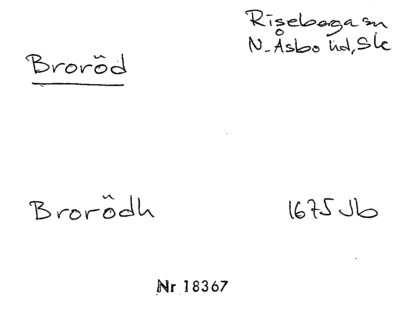 Riseberga sn
N. Åsbo hd, Sk
Broröd
Brorödh 1675 Jb
Nr 18367